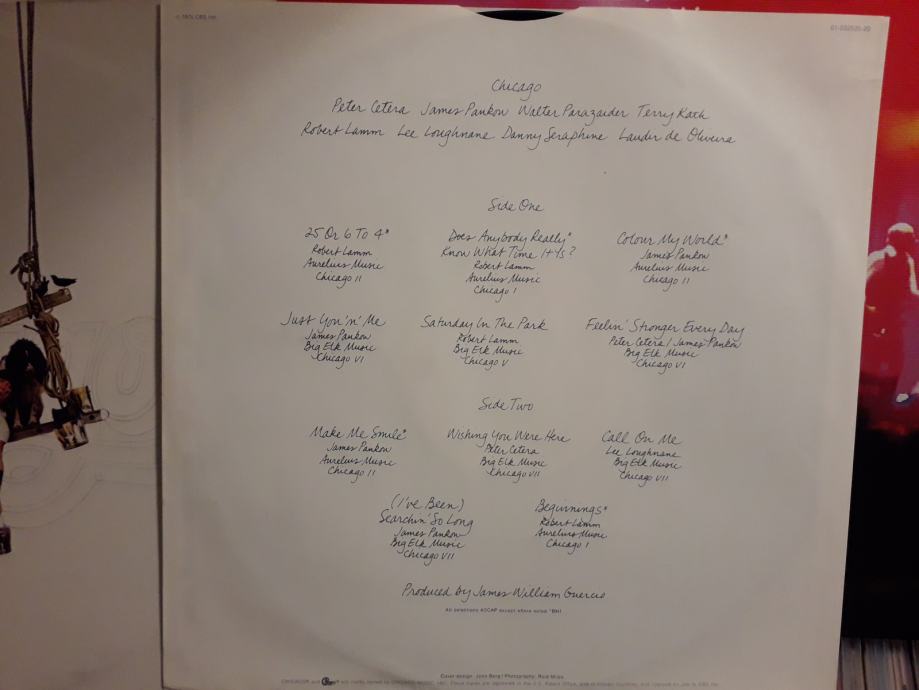 © 1975 CBS Inc.
Chicago
Peter Cetera James Pankow Walter Parazaider Terry Kath
Robert Lamm Lee Loughnane Danny Seraphine Laudir de Oliveira
Side One
25 Or 6 To 4*
Robert Lamm
Aurelius Music
Chicago II
Does Anybody Really*
Know What Time It Is?
Robert Lamm
Aurelius Music
Chicago I
Colour My World*
James Pankow
Aurelius Music
Chicago II
Just You 'n' Me
James Pankow
Big Elk Music
Chicago VI
Saturday In The Park
Robert Lamm
Big Elk Music
Chicago V
Feelin' Stronger Every Day
Peter Cetera / James Pankow
Big Elk Music
Chicago VI
Side Two
Make Me Smile*
James Pankow
Aurelius Music
Chicago II
Wishing You Were Here
Peter Cetera
Big Elk Music
Chicago VII
Call On Me
Lee Loughnane
Big Elk Music
Chicago VII
(I've Been)
Searchin' So Long
James Pankow
Big Elk Music
Chicago VII
Beginnings*
Robert Lamm
Aurelius Music
Chicago I
Produced by James William Guercio
All selections ASCAP except where noted *BMI
Cover design: John Berg / Photography: Reid Miles